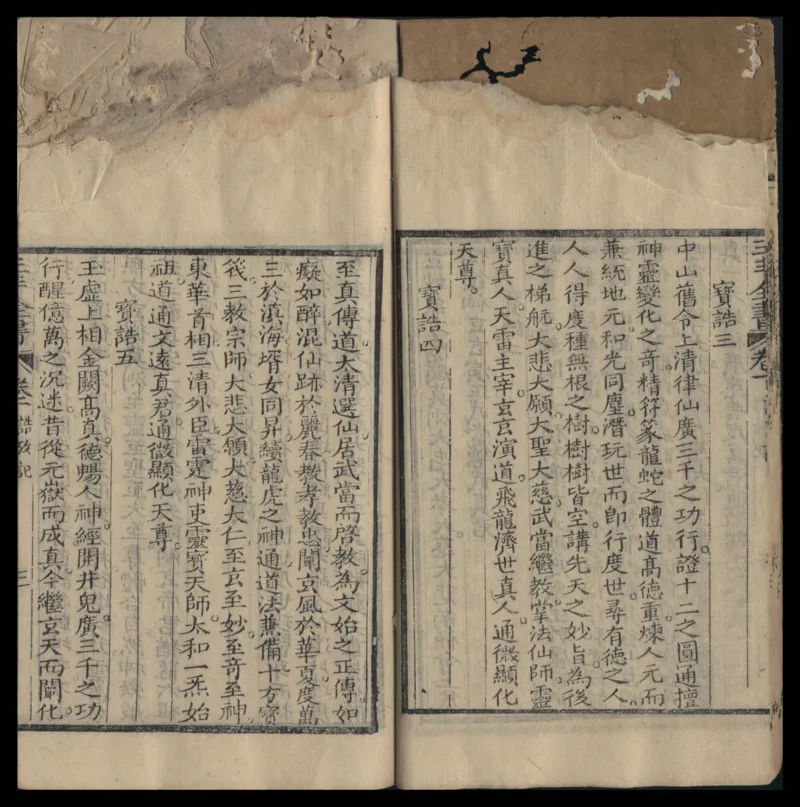 三丰全書 卷一
寶誥三
中山舊令上清律仙廣三千之功行證十二之圓通擅
神靈變化之奇精符篆龍蛇之體道高德重煉人元而
兼統地元和光同塵潛玩世而卽行度世尋有德之人
人人得度種無根之樹樹樹皆空講先天之妙旨為後
進之梯航大悲大願大聖大慈武當繼教掌法仙師靈
寶真人天雷主宰玄玄演道飛龍濟世真人通微顯化
天尊
寶誥四
至真傳道太清選仙居武當而啓教為文始之正傳如
癡如醉混仙跡於麗春教孝教忠闡玄風於華夏度萬
三於滇海壻女同昇續龍虎之神通道法兼備十方寶
筏三教宗師大悲大願大慈大仁至玄至妙至奇至神
東華首相三清外臣雷霆神吏靈寶天師太和一炁始
祖道通文遠真君通微顯化天尊
寶誥五
玉虛上相金闕高真德暢人神經開井鬼廣三千之功
行醒億萬之沉迷昔從元嶽而成真今繼玄天而闡化
三丰全書 卷一 誥攷記 三